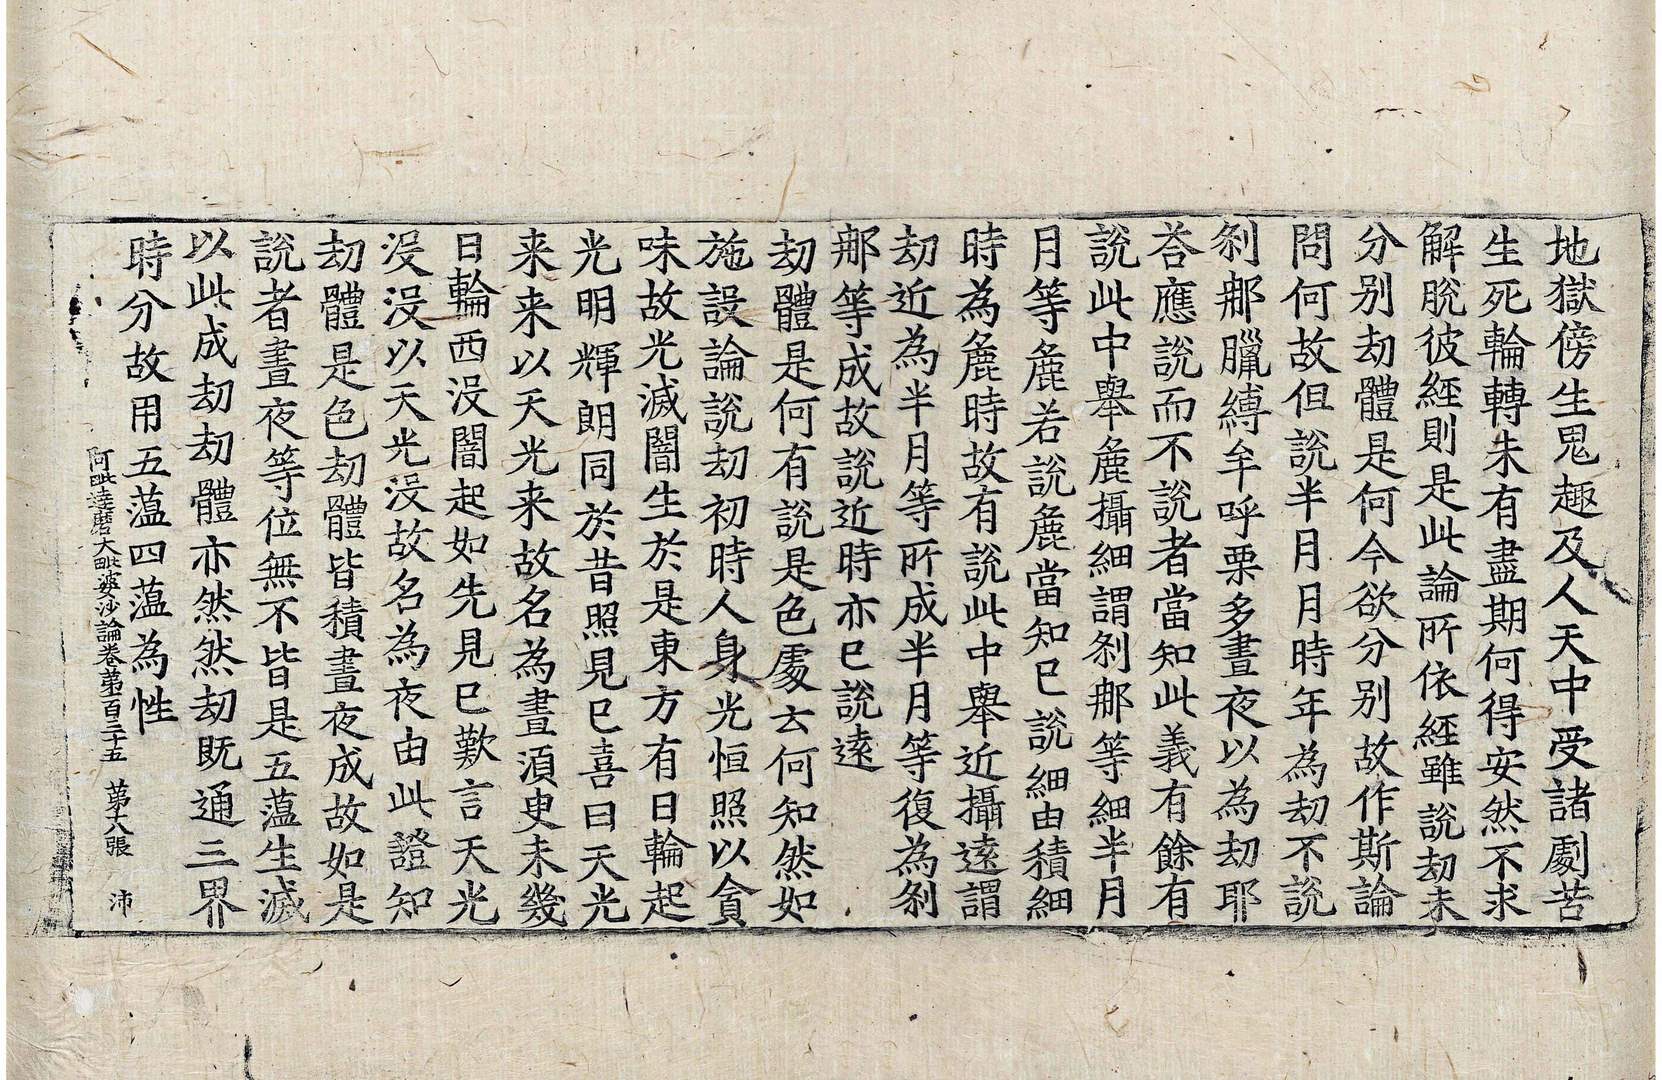 地獄傍生鬼趣及人天中受諸劇苦
生死輪轉未有盡期何得安然不求
解脫彼經則是此論所依經雖說劫未
分別劫體是何今欲分別故作斯論
問何故但說半月月時年為劫不說
刹那臘縛牟呼栗多晝夜以為劫耶
荅應說而不說者當知此義有餘有
說此中舉麁攝細謂刹那等細半月
月等麁若說麁當知已說細由積細
時為麁時故有說此中舉近攝遠謂
劫近為半月等所成半月等復為刹
那等成故說近時亦已說遠
劫體是何有說是色處云何知然如
施設論說劫初時人身光恒照以貪
味故光滅闇生於是東方有日輪起
光明輝朗同於昔照見已喜曰天光
来来以天光来故名為晝湏臾未幾
日輪西没闇起如先見已歎言天光
没没以天光没故名為夜由此證知
劫體是色劫體皆積晝夜成故如是
說者晝夜等位無不皆是五薀生滅
以此成劫劫體亦然然劫既通三界
時分故用五薀四薀為性
阿毗達磨大毗婆沙論卷第百三十五 第十八張 沛